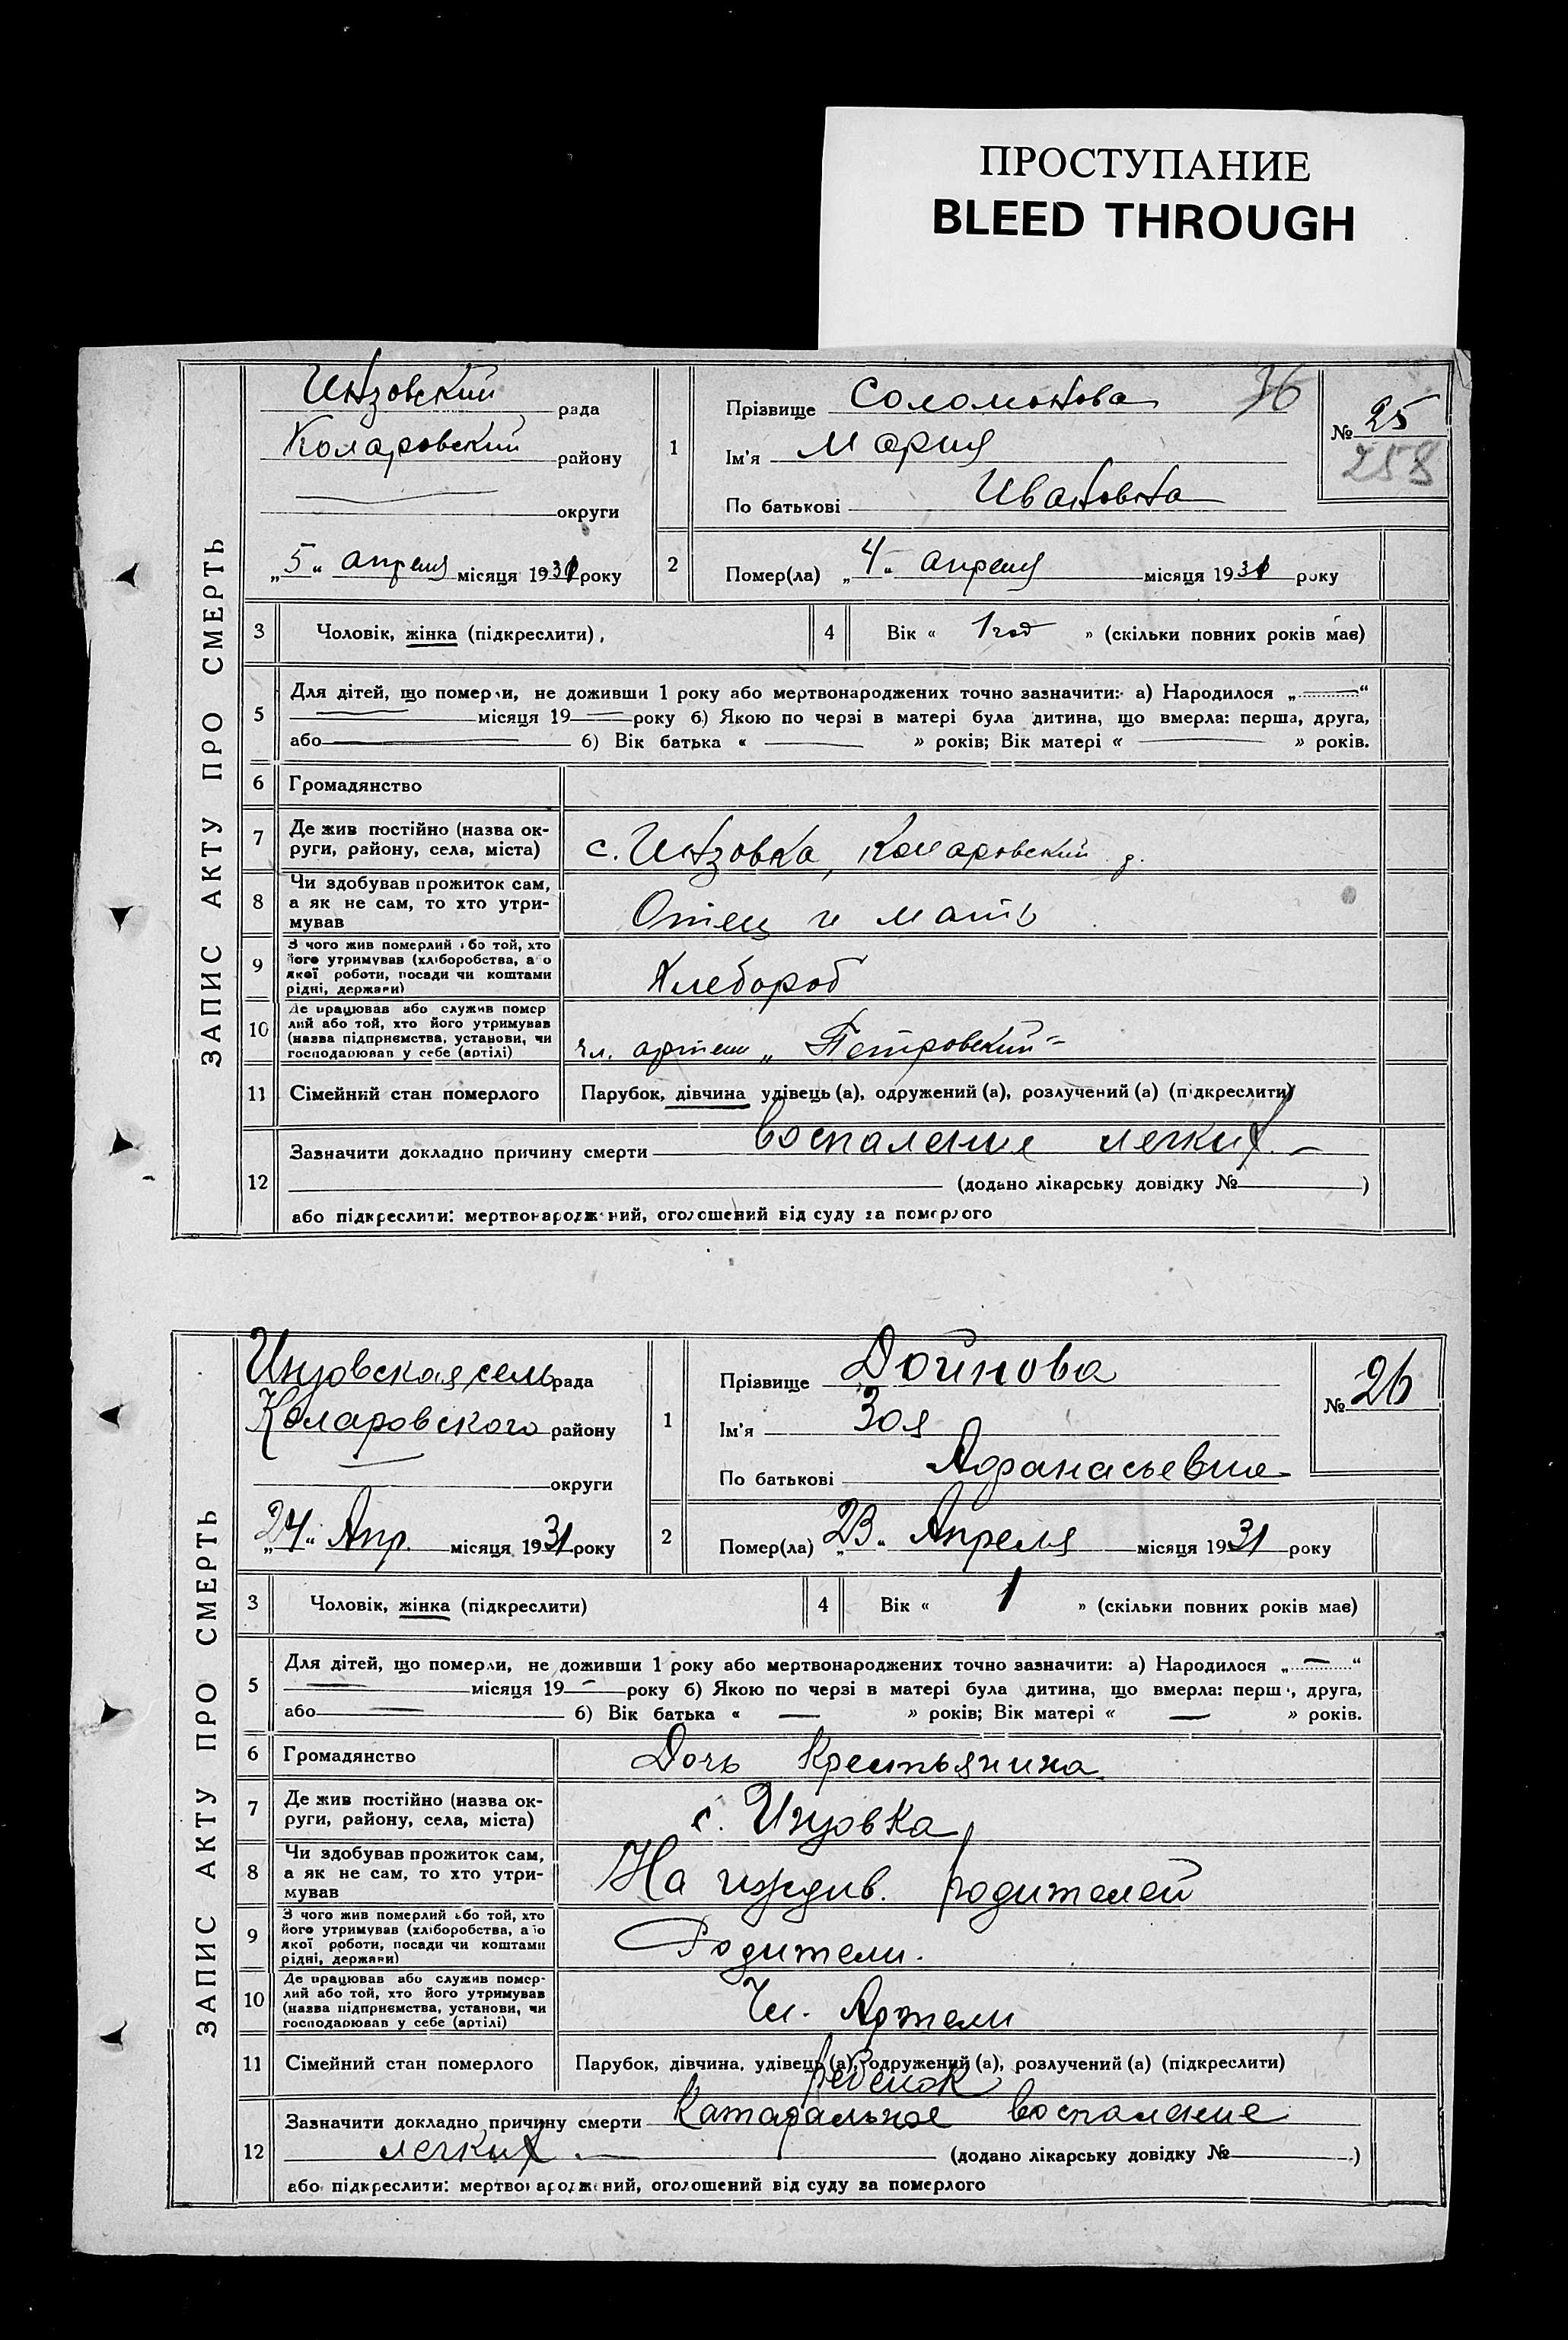 ПРОСТУПАНИЕ
BLEED THROUGH
ЗАПИС АКТУ ПРО СМЕРТЬ
Инзовский рада
Коларовский району
округи
„5“ апреля місяця 1931 року
1
Прізвище Соломонова
36
Ім'я Мария
По батькові Ивановна
№ 25
258
2
Помер(ла) „4“ апреля місяця 1931 року
3 Чоловік, жінка (підкреслити),
4 Вік « 1 год » (скільки повних років має)
5
Для дітей, що померли, не доживши 1 року або мертвонароджених точно зазначити: а) Народилося „—“
— місяця 19— року б) Якою по черзі в матері була дитина, що вмерла: перша, друга,
або — б) Вік батька « — » років; Вік матері « — » років.
6 Громадянство
7 Де жив постійно (назва ок-
руги, району, села, міста)
с. Инзовка, Коларовский р.
8 Чи здобував прожиток сам,
а як не сам, то хто утри-
мував
Отец и мать
9 З чого жив померлий або той, хто
його утримував (хліборобства, або
якої роботи, посади чи коштами
рідні, держави)
Хлебороб
10 Де працював або служив помер
лий або той, хто його утримував
(назва підприємства, установи, чи
господарював у себе (артілі)
чл. артели „Петровский“
11 Сімейний стан померлого
Парубок, дівчина удівець (а), одружений (а), розлучений (а) (підкреслити)
12
Зазначити докладно причину смерти воспаление легких. —
(додано лікарську довідку № )
або підкреслити: мертвонароджений, оголошений від суду за померлого
ЗАПИС АКТУ ПРО СМЕРТЬ
Инзовская сель рада
Коларовского району
— округи
„24“ Апр. місяця 1931 року
1
Прізвище Дойнова
Ім'я Зоя
По батькові Афанасьевна
№ 26
2
Помер(ла) „23“ Апреля місяця 1931 року
3 Чоловік, жінка (підкреслити)
4 Вік « 1 » (скільки повних років має)
5
Для дітей, що померли, не доживши 1 року або мертвонароджених точно зазначити: а) Народилося „—“
— місяця 19— року б) Якою по черзі в матері була дитина, що вмерла: перша, друга,
або — б) Вік батька « — » років; Вік матері « — » років.
6 Громадянство
Дочь Крестьянина
7 Де жив постійно (назва ок-
руги, району, села, міста)
с. Инзовка
8 Чи здобував прожиток сам,
а як не сам, то хто утри-
мував
На иждив. родителей
9 З чого жив померлий або той, хто
його утримував (хліборобства, або
якої роботи, посади чи коштами
рідні, держави)
Родители.
10 Де працював або служив помер-
лий або той, хто його утримував
(назва підприємства, установи, чи
господарював у себе (артілі)
Чл. Артели
11 Сімейний стан померлого
Парубок, дівчина, удівець (а), одружений (а), розлучений (а) (підкреслити)
ребенок
12
Зазначити докладно причину смерти Катаральное воспаление
легких — (додано лікарську довідку № )
або підкреслити: мертвонароджений, оголошений від суду за померлого